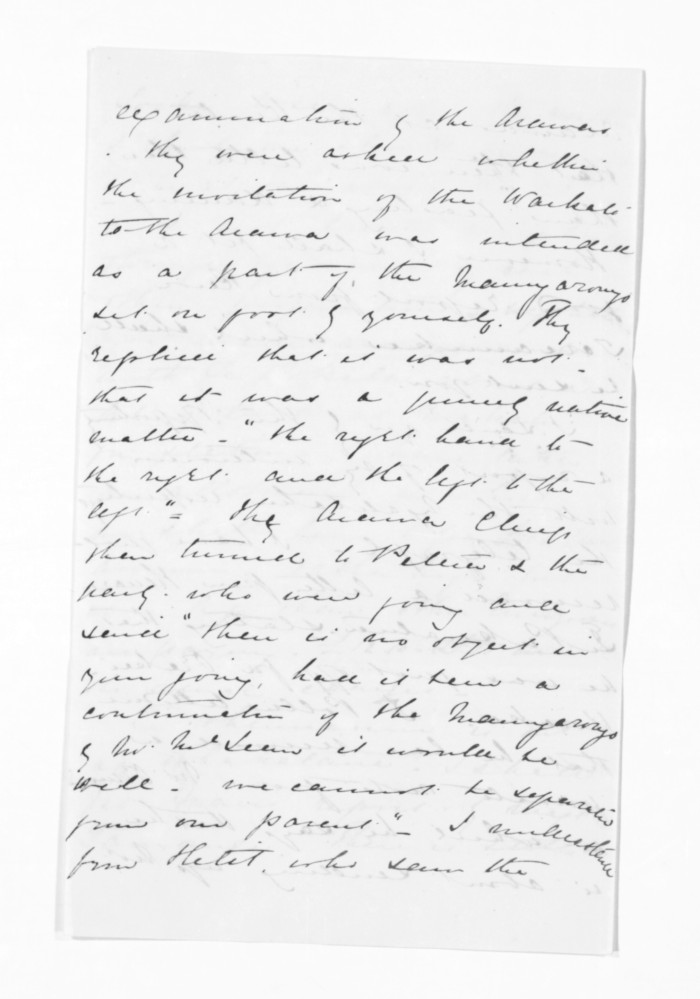 examination of the Arawas
. They were asked whether
the invitation of the Waikato
to the Arawa was intended
as a part of, the Maungarongo
set on foot by yourself. They
replied that it was not -
that it was a purely native
matter - "the right hand to
the right and the left to the
left" = The Arawa Chiefs
then turned to & the
party. who were going and
said "then is no object in
your going, had it been a
continuation of the Maungarongo
of Mr. McLean it would be
well - we cannot be separated
from our parent" - I understand
from who saw the